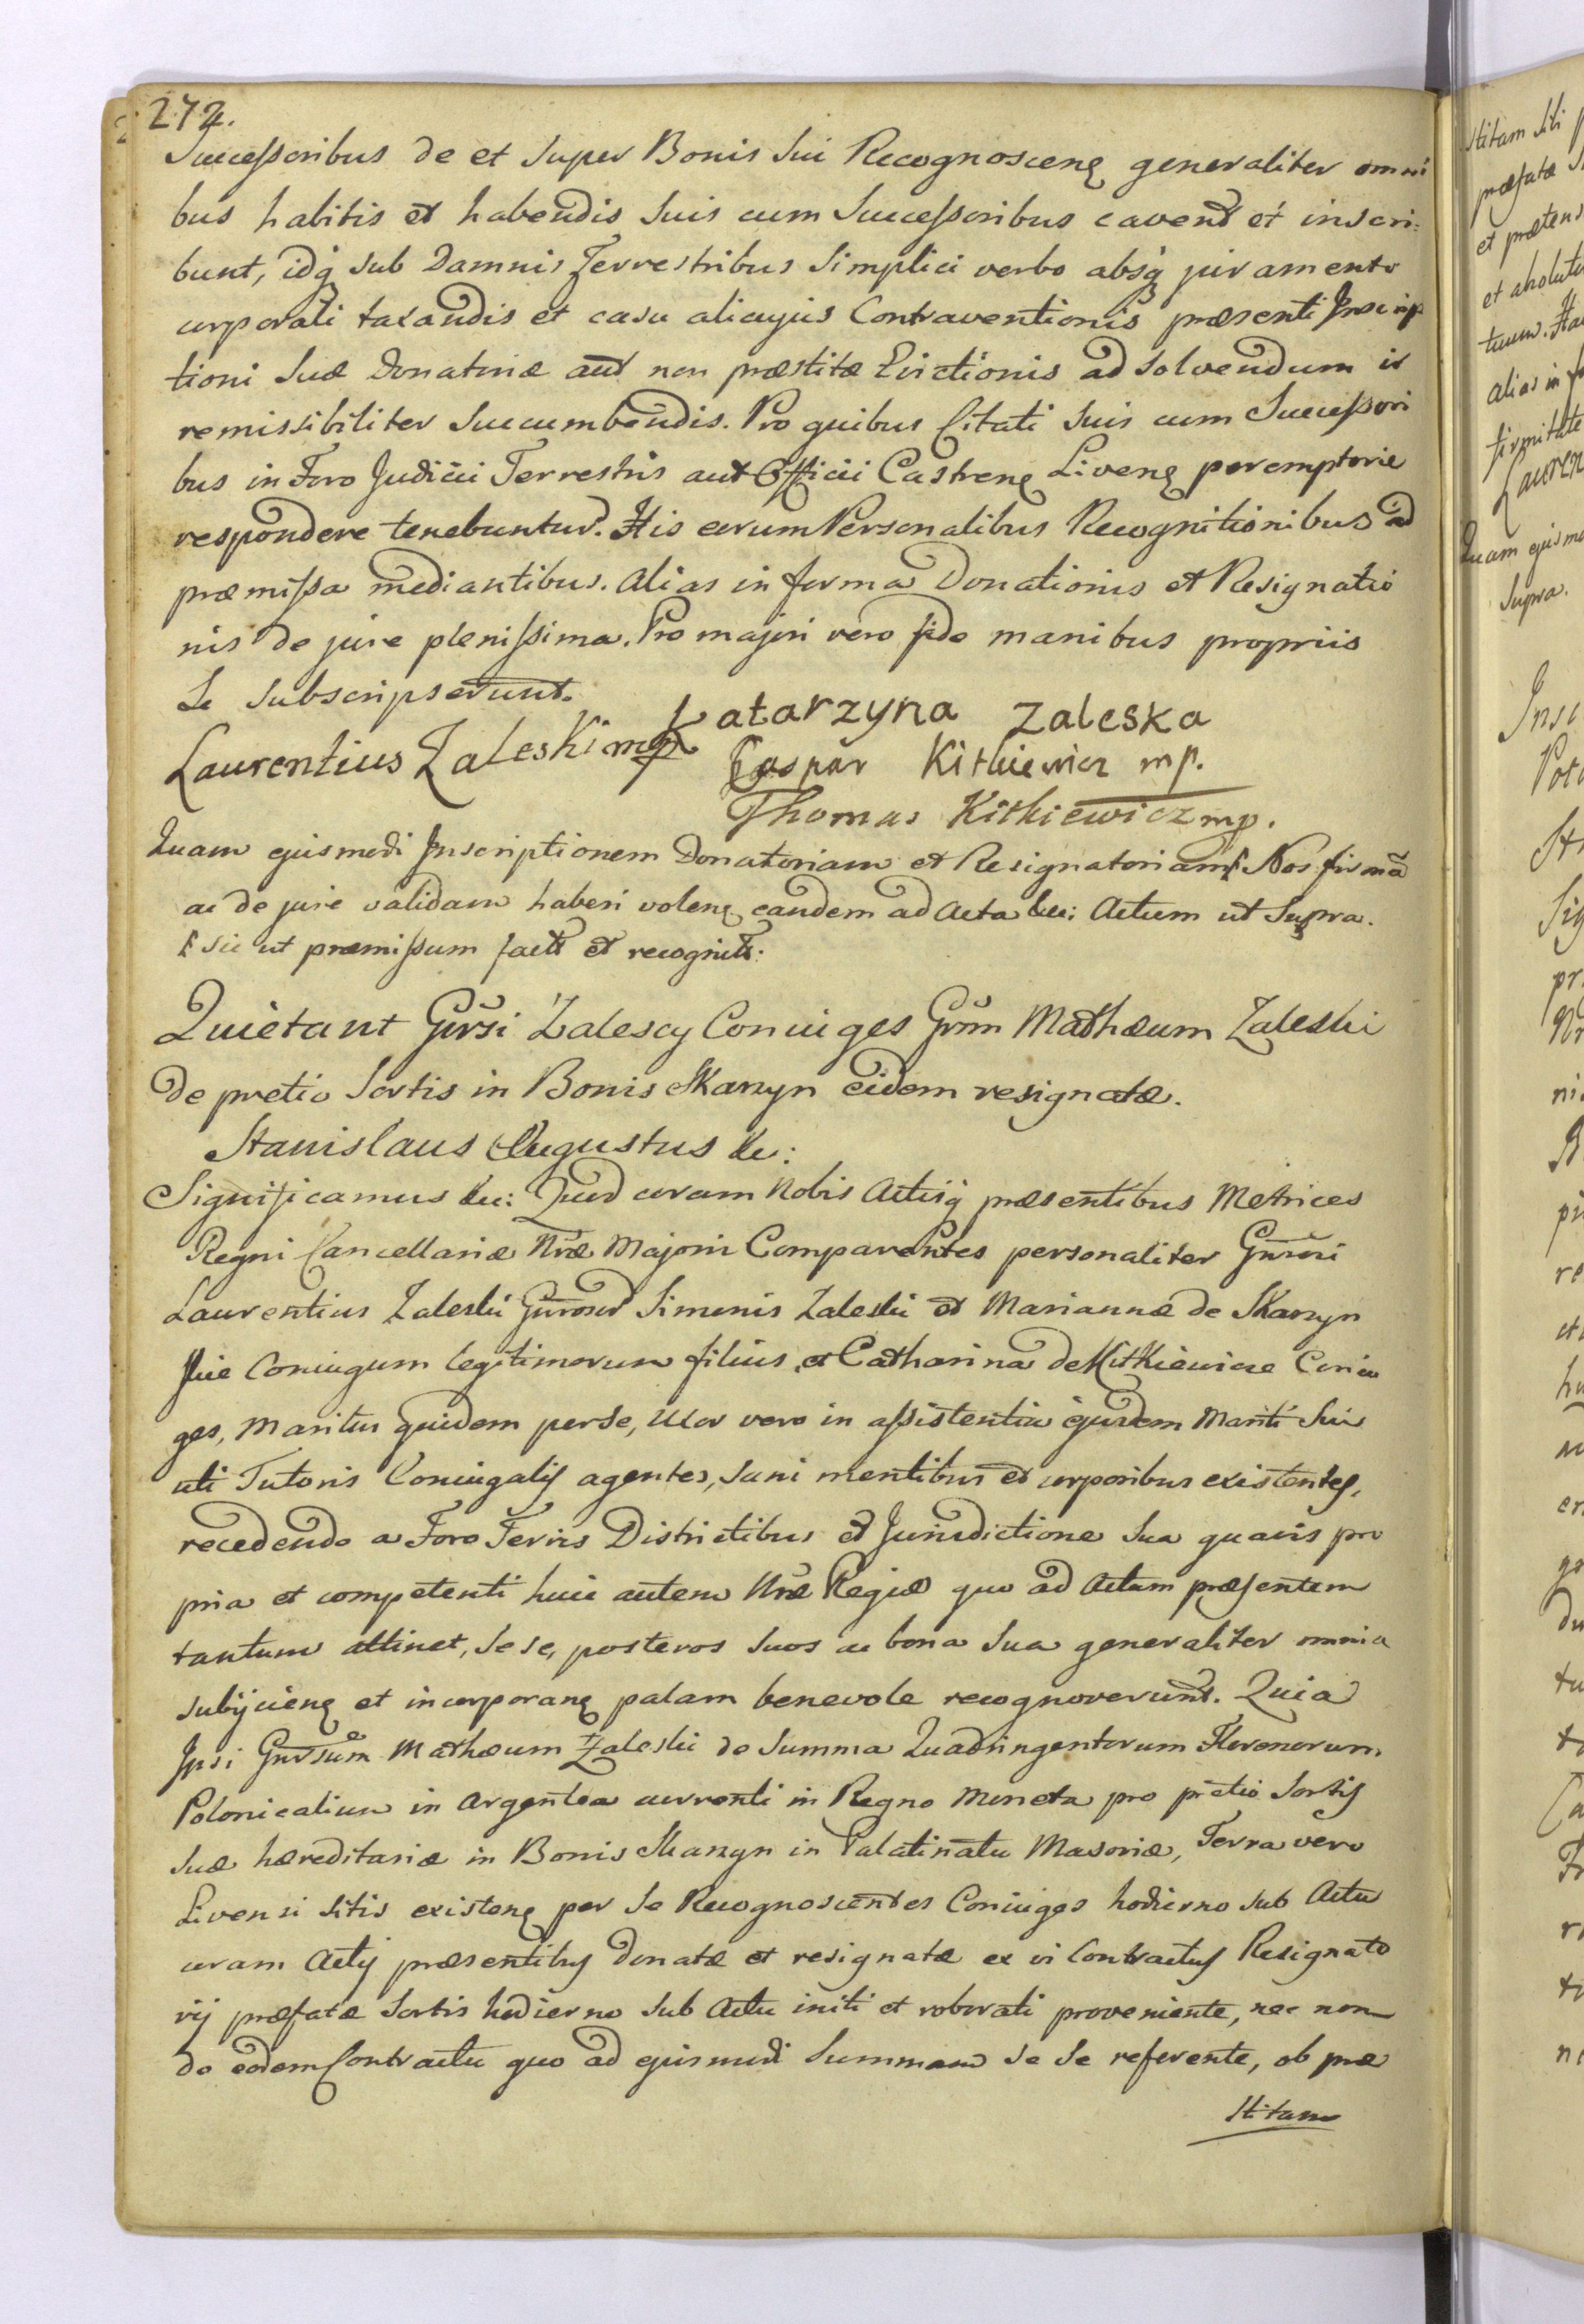 272.
Successoribus de et super Bonis sui Recognoscenę generaliter omni
bus habitis et habendis suis cum Successoribus cavent et inscri:
bunt, idq sub Damnis Terrestribus simplici verbo absq juramento
corporali taxandis et casu alicujus Contraventionis præsenti Inscrip
tioni suæ Donatoriæ aut non præstitæ Evictionis ad solvendum ir
remissibiliter succumbendis. Pro quibus Citati suis cum Successori
bus in Foro Judicii Terrestris aut Officii Castrenę Livenę peremptorie
respondere tenebuntur. His earum Personalibus Recognitionibus ad
præmissa mediantibus. Alias in forma Donationis et Resignatio
nis de jure plenissima. Pro majori vero fide manibus propriis
se subscripserunt.
Laurentius Zaleski mp Katarzyna Zaleska
Caspar Kitkiewicz mp.
Thomas Kitkiewicz mp.
Quam ejusmodi Inscriptionem Donatoriam et Resignatoriam Nos firmã
ac de jure validam haberi volenę eandem ad Acta &c: Actum ut Supra.
sic ut præmissum fact et recognit:
Quietant Grsi Zalescy Coniuges Grm Mathæum Zaleski
de pretio sortis in Bonis Skarzyn eidem resignatæ.
Stanislaus Augustus &c:
Significamus &c: Quod coram Nobis Actisq præsentibus Metrices
Regni Cancellariæ Nræ Majoris Comparentes personaliter Gnrosi
Laurentius Zaleski Gnrosor Simonis Zaleski et Mariannæ de Skarzyn
skie Coniugum legitimorum filius et Catharina de Kitkiewicze Coniu
ges, Maritus quidem per se, Uxor vero in assistentia ejusdem Mariti sui
uti Tutoris Coniugalis agentes, sani mentibus et corporibus existentes,
recedendo a Foro Terris Districtibus et Jurisdictione sua quavis pro
pria et competenti huic autem Nræ Regiæ quo ad Actum præsentem
tantum attinet, sese, posteros suos ac bona sua generaliter omnia
subijcienę et incorporanę palam benevole recognoverunt. Quia
Ipsi Gnrsum Mathæum Zaleski de Summa Quadringentorum Florenorum
Polonicalium in argentea currenti in Regno Moneta pro pretio sortis
suæ hæreditariæ in Bonis Skarzyn in Palatinatu Masoviæ, Terra vero
Livensi sitis existenę per se Recognoscentes Coniuges hodierno sub Actu
coram Actis præsentibus donatæ et resignatæ ex vi Contractus Resignato
rij præfatæ Sortis hodierno sub Actu initi et roborati proveniente, nec non
de eodem Contractu quo ad ejusmodi Summam se se referente, ob præ
stitam